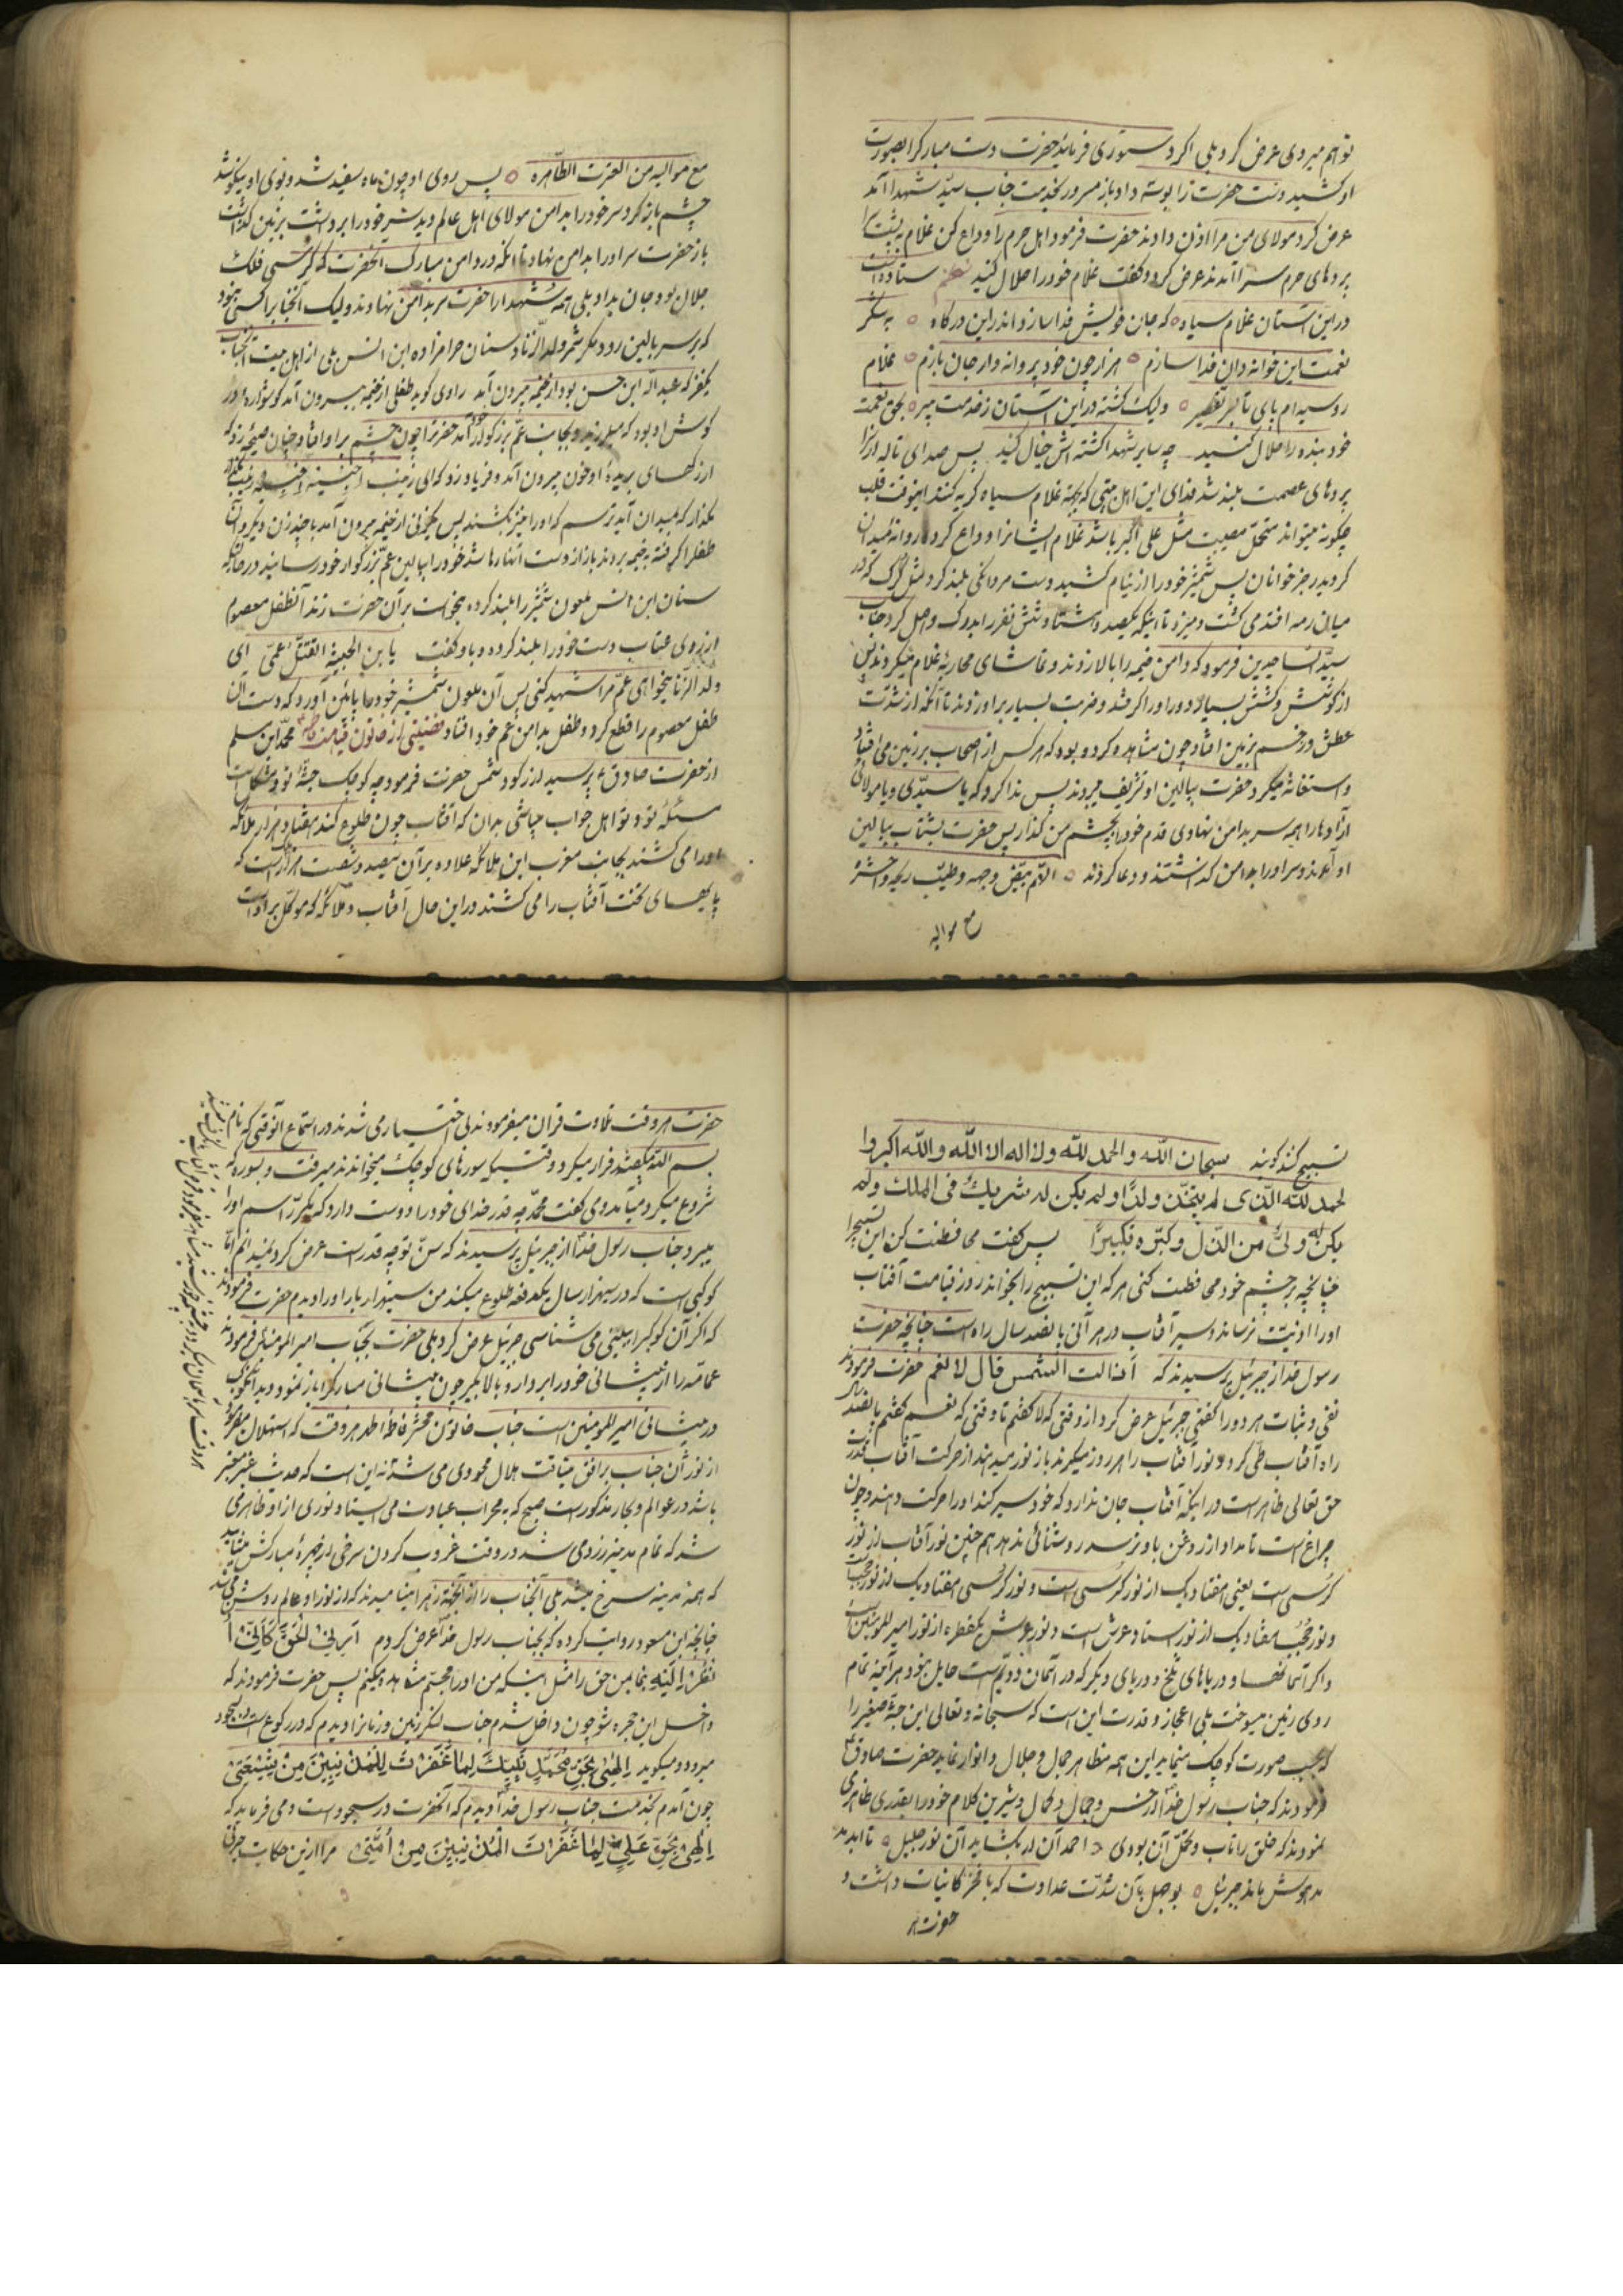 تو هم میروی عرض کرد بلی اگر دستوری فرمائید حضرت دست مبارک را بصورت
او کشید دست حضرت را بوسه داد باز مسرور بخدمت جناب سید شهدا آمد
عرض کرد مولای من مرا اذن دادند حضرت فرمود اهل حرم را وداع کن غلام به پشت
پردهای حرم سرا آمد عرض کرد و گفت غلام خود را حلال کنید نظم ستاده است
در این آستان غلام سیاه که جان خویش فدا سازد اندر این درگاه به شکر
نعمت این خوانه دان فدا سازم هزار چون خود پروانه وار جان بازم غلام
روسیه ام پای تا بسر تقصیر ولیک گشته در این آستان ز خدمت پیر بحق نعمت
خود بنده را حلال کنید چه سایر شهدا کشته اش خیال کنید پس صدای ناله از
پردهای عصمت بلند شد فدای این اهل بیتی که بجهة غلام سیاه گریه کنند اینوقت قلب
چگونه میتواند متحمل مصیبت مثل علی اکبر باشد غلام ایشانرا وداع کرد و روانه میدان
گردید رجز خوانان پس شمشیر خود را از نیام کشید دست مردانگی بلند کرد مثل گرگ که در
میان رمه افتد می کشت و میزد تا اینکه یکصد و هشتاد و شش نفر را بدرک واصل کرد جناب
سید الساجدین فرمود که دامن خیمه را بالا زدند و تماشای محاربه غلام میکردند پس
از کوشش و کشش بسیار دور او را گرفتند و ضربت بسیار بر او زدند تا آنکه از شدت
عطش و زخم بزمین افتاد چون مشاهده کرده بود که هر کس از اصحاب بر زمین می افتاد
و استغاثه میکرد حضرت ببالین او تشریف میبردند پس ندا کرد که یا سیدی و یا مولائی
آزادها را همه سر بدامن نهادی قدم خود را بچشم من گذار پس حضرت بشتاب ببالین
او آمدند و سر او را بدامن گذاشتند و دعا کردند اللهم بیض وجهه و طیب ریحه و احشره
مع موالیه
مع موالیه من العترت الطاهره پس روی او چون ماه سفید شد و بوی او نیکو شد
چشم باز کرد سر خود را بدامن مولای اهل عالم دید سر خود را برداشت بزمین گذاشت
باز حضرت سر او را بدامن نهاد تا آنکه در دامن مبارک آنحضرت که کرسی فلک
جلال بود جان بداد بلی همه شهدا را حضرت سر بدامن نهادند ولیک آنجناب را کسی نبود
که بر سر بالین رود مگر شمر ولد الزنا و سنان حرامزاده ابن انس بلی از اهل بیت آنجناب
یکنفر که عبد الله ابن حسن بود از خیمه بیرون آمد راوی گوید طفلی از خیمه بیرون آمد گوشواره در
گوش او بود که میلرزید و بجانب عم بزرگوار خود آمد حضرت را چون چشم بر او افتاد چنان صیحه زد که
از رگهای بریده او خون بیرون آمد و فریاد زد که ای زینب احبسیه احبسیه زینب
مگذار که بمیدان آید ترسم که او را نیز بکشند پس یکزنی از خیمه بیرون آمد با چند زن دیگر و آن
طفل را گرفته بخیمه بردند باز از دست آنها رها شد خود را ببالین عم بزرگوار خود رسانید در حالتیکه
سنان ابن انس ملعون شمشیر را بلند کرده میخواست بر آن حضرت زند آنطفل معصوم
از روی عتاب دست خود را بلند کرده و باو گفت یا بن الخبیثة اتقتل عمی ای
ولد الزنا میخواهی عم مرا شهید کنی پس آن ملعون شمشیر خود را پائین آورد که دست آن
طفل معصوم را قطع کرد و طفل بدامن عم خود افتاد فضیلتی از خاتون قیامت محمد ابن مسلم
از حضرت صادق ع پرسید از رکود شمس حضرت فرمود چه کوچک جثه تو و مشکل است
مسئله تو و تو اهل جواب میباشی بدان که آفتاب چون طلوع کند هفتاد هزار ملائکه
او را می کشند بجانب مغرب این ملائکه علاوه بر آن سیصد و شصت هزار است که
پایهای تخت آفتاب را می کشند در این حال آفتاب و ملائکه که موکل بر او است
تسبیح کند گویند سبحان الله و الحمد لله ولا اله الا الله و الله اکبر وا
لحمد لله الذی لم یتخذ ولدًا و لم یکن له شریك فی الملك و لم
یکن له ولی من الذل و کبره تکبیرًا پس گفت محافظت کن این تسبیح را
چنانچه بر چشم خود محافظت کنی هر که این تسبیح را بخواند روز قیامت آفتاب
او را اذیت نرساند و سیر آفتاب در هر آنی پانصد سال راه است چنانچه حضرت
رسول خدا از جبرئیل پرسیدند که أزالت الشمس قال لا نعم حضرت فرمودند
نفی و ثبات هر دو را گفتی جبرئیل عرض کرد از وقتی که لا گفتم تا وقتی که نعم گفتم پانصد سال
راه آفتاب طی کرد و نور آفتاب را هر روز میگیرند باز نور میدهند از حرکت آفتاب قدرت
حق تعالی ظاهر است در اینکه آفتاب جان ندارد که خود سیر کند او را حرکت دهند و چون
چراغ است تا مداد از روغن باو نرسد روشنائی ندهد هم چنین نور آفتاب از نور
کرسی است یعنی هفتاد یک از نور کرسی است و نور کرسی هفتاد یک از نور حجب
و نور حجب هفتاد یک از نور استاد عرش است و نور عرش یکقطره از نور امیر المؤمنین است
و اگر آسمانها و دریاهای تلخ و دریای دیگر که در آسمان دویم است حایل نبود هر آینه تمام
روی زمین میسوخت بلی اعجاز و قدرت این است که سبحانه و تعالی این جثه صغیر را
که بحسب صورت کوچک مینماید این همه مظاهر جمال و جلال و انوار نماید حضرت صادق ع
فرمودند که جناب رسول خدا از حسن و جمال و کمال و شیرین کلام خود را بقدری ظاهر
نمودند که خلق را تاب و تحمل آن بودی احمد ار بگشاید آن نور جلیل تا ابد
مدهوش ماند جبرئیل بوجهل بآن شدت عداوت که با فخر کائنات داشت و
حضرت هر
حضرت هر وقت تلاوت قران میفرمودند بی اختیار می شدند در استماع آنوقتی که نام
بسم الله میشد فرار میکرد و وقتیکه سورهای کوچک میخواندند میرفت و بسوره که
شروع میکرد می آمد و می گفت محمد چه قدر خدای خود را دوست دارد که مکرر اسم او را
میبرد جناب رسول خدا از جبرئیل پرسیدند که سن تو چه قدر است عرض کرد نمیدانم اما
کوکبی است که در سیهزار سال یکدفعه طلوع میکند من سیهزار بار او را دیدم حضرت فرمودند
که اگر آن کوکب را ببینی می شناسی جبرئیل عرض کرد بلی حضرت بجناب امیر المؤمنین فرمودند
عمامه را از پیشانی خود را بردار و بالا بگیر چون پیشانی مبارک را باز نمود دید آنکوکب
در پیشانی امیر المؤمنین است جناب خاتون محشر فاطمه اطهر هر وقت که استهلال میفرمود
از نور آن جناب بر افق میتافت هلال محو می شد نه این است که حدیث غیر معتبر
باشد در عوالم و بحار مذکور است صبح که به محراب عبادت می ایستاد نوری از او ظاهر می
شد که تمام مدینه زرد می شد در وقت غروب کردن سرخی از چهره مبارکش میتابید
که همه مدینه سرخ میشد بلی آنجناب را از آنجهة زهرا مینامیدند که از نور او عالم روشن می شد
چنانچه ابن مسعود روایت کرده که بجناب رسول خدا عرض کردم أرنی الحق کأنی أ
نظر إلیه بنما بمن حق را مثل اینکه من او را مجسم مشاهده میکنم پس حضرت فرمودند که
داخل این حجره شو چون داخل شدم جناب لنگر زمین و زمانرا دیدم که در رکوع است و بسجود
میرود و میگوید إلهی بحق محمد نبیك لما غفرت للمذنبین من شیعتی
چون آمدم بخدمت جناب رسول خدا دیدم که آنحضرت در سجود است و می فرماید که
إلهی بحق علی لما غفرت المذنبین من أمتی مرا از این حکایت حیرتی